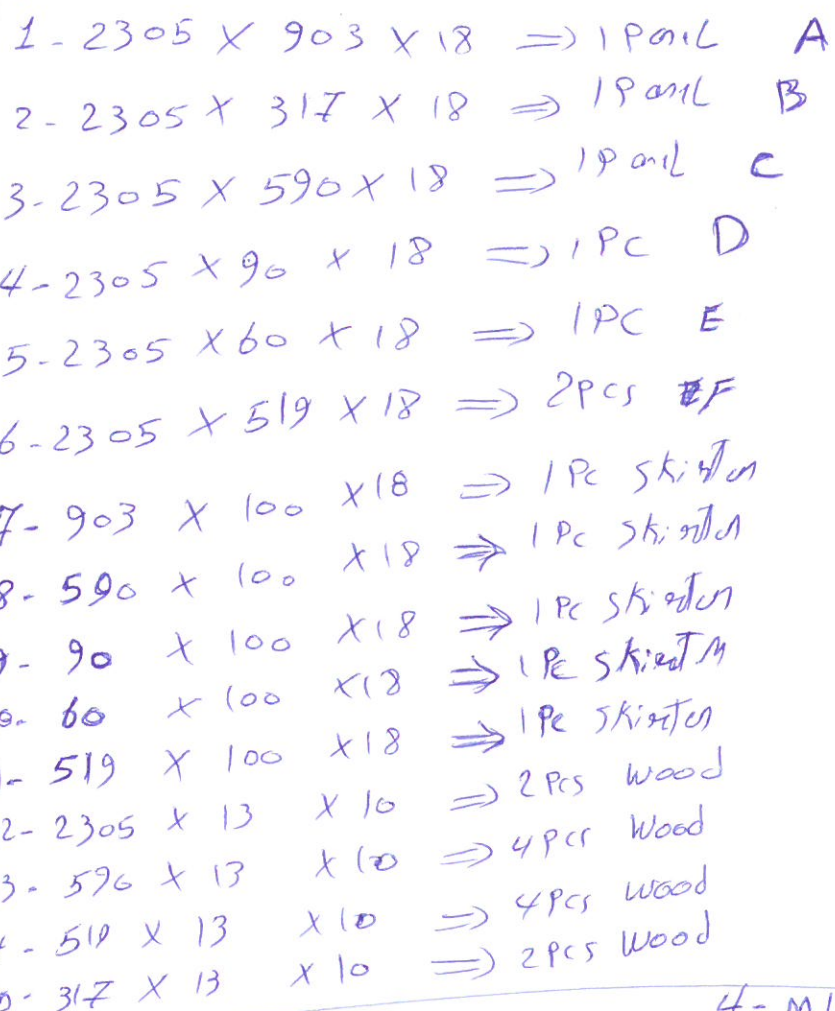 1- 2305 X 903 X 18 => 1 Panil A
2- 2305 X 317 X 18 => 1 Panil B
3- 2305 X 590 X 18 => 1 Panil C
4- 2305 X 90 X 18 => 1 PC D
5- 2305 X 60 X 18 => 1 PC E
6- 2305 X 519 X 18 => 2 Pcs F
7- 903 X 100 X 18 => 1 Pc
8- 590 X 100 X 18 => 1 Pc
- 90 X 100 X 18 => 1 Pc
- 60 X 100 X 18 => 1 Pc
- 519 X 100 X 18 => 1 Pc
2- 2305 X 13 X 10 => 2 Pcs Wood
3- 590 X 13 X 10 => 4 Pcs Wood
- 519 X 13 X 10 => 4 Pcs Wood
- 317 X 13 X 10 => 2 Pcs Wood
4-